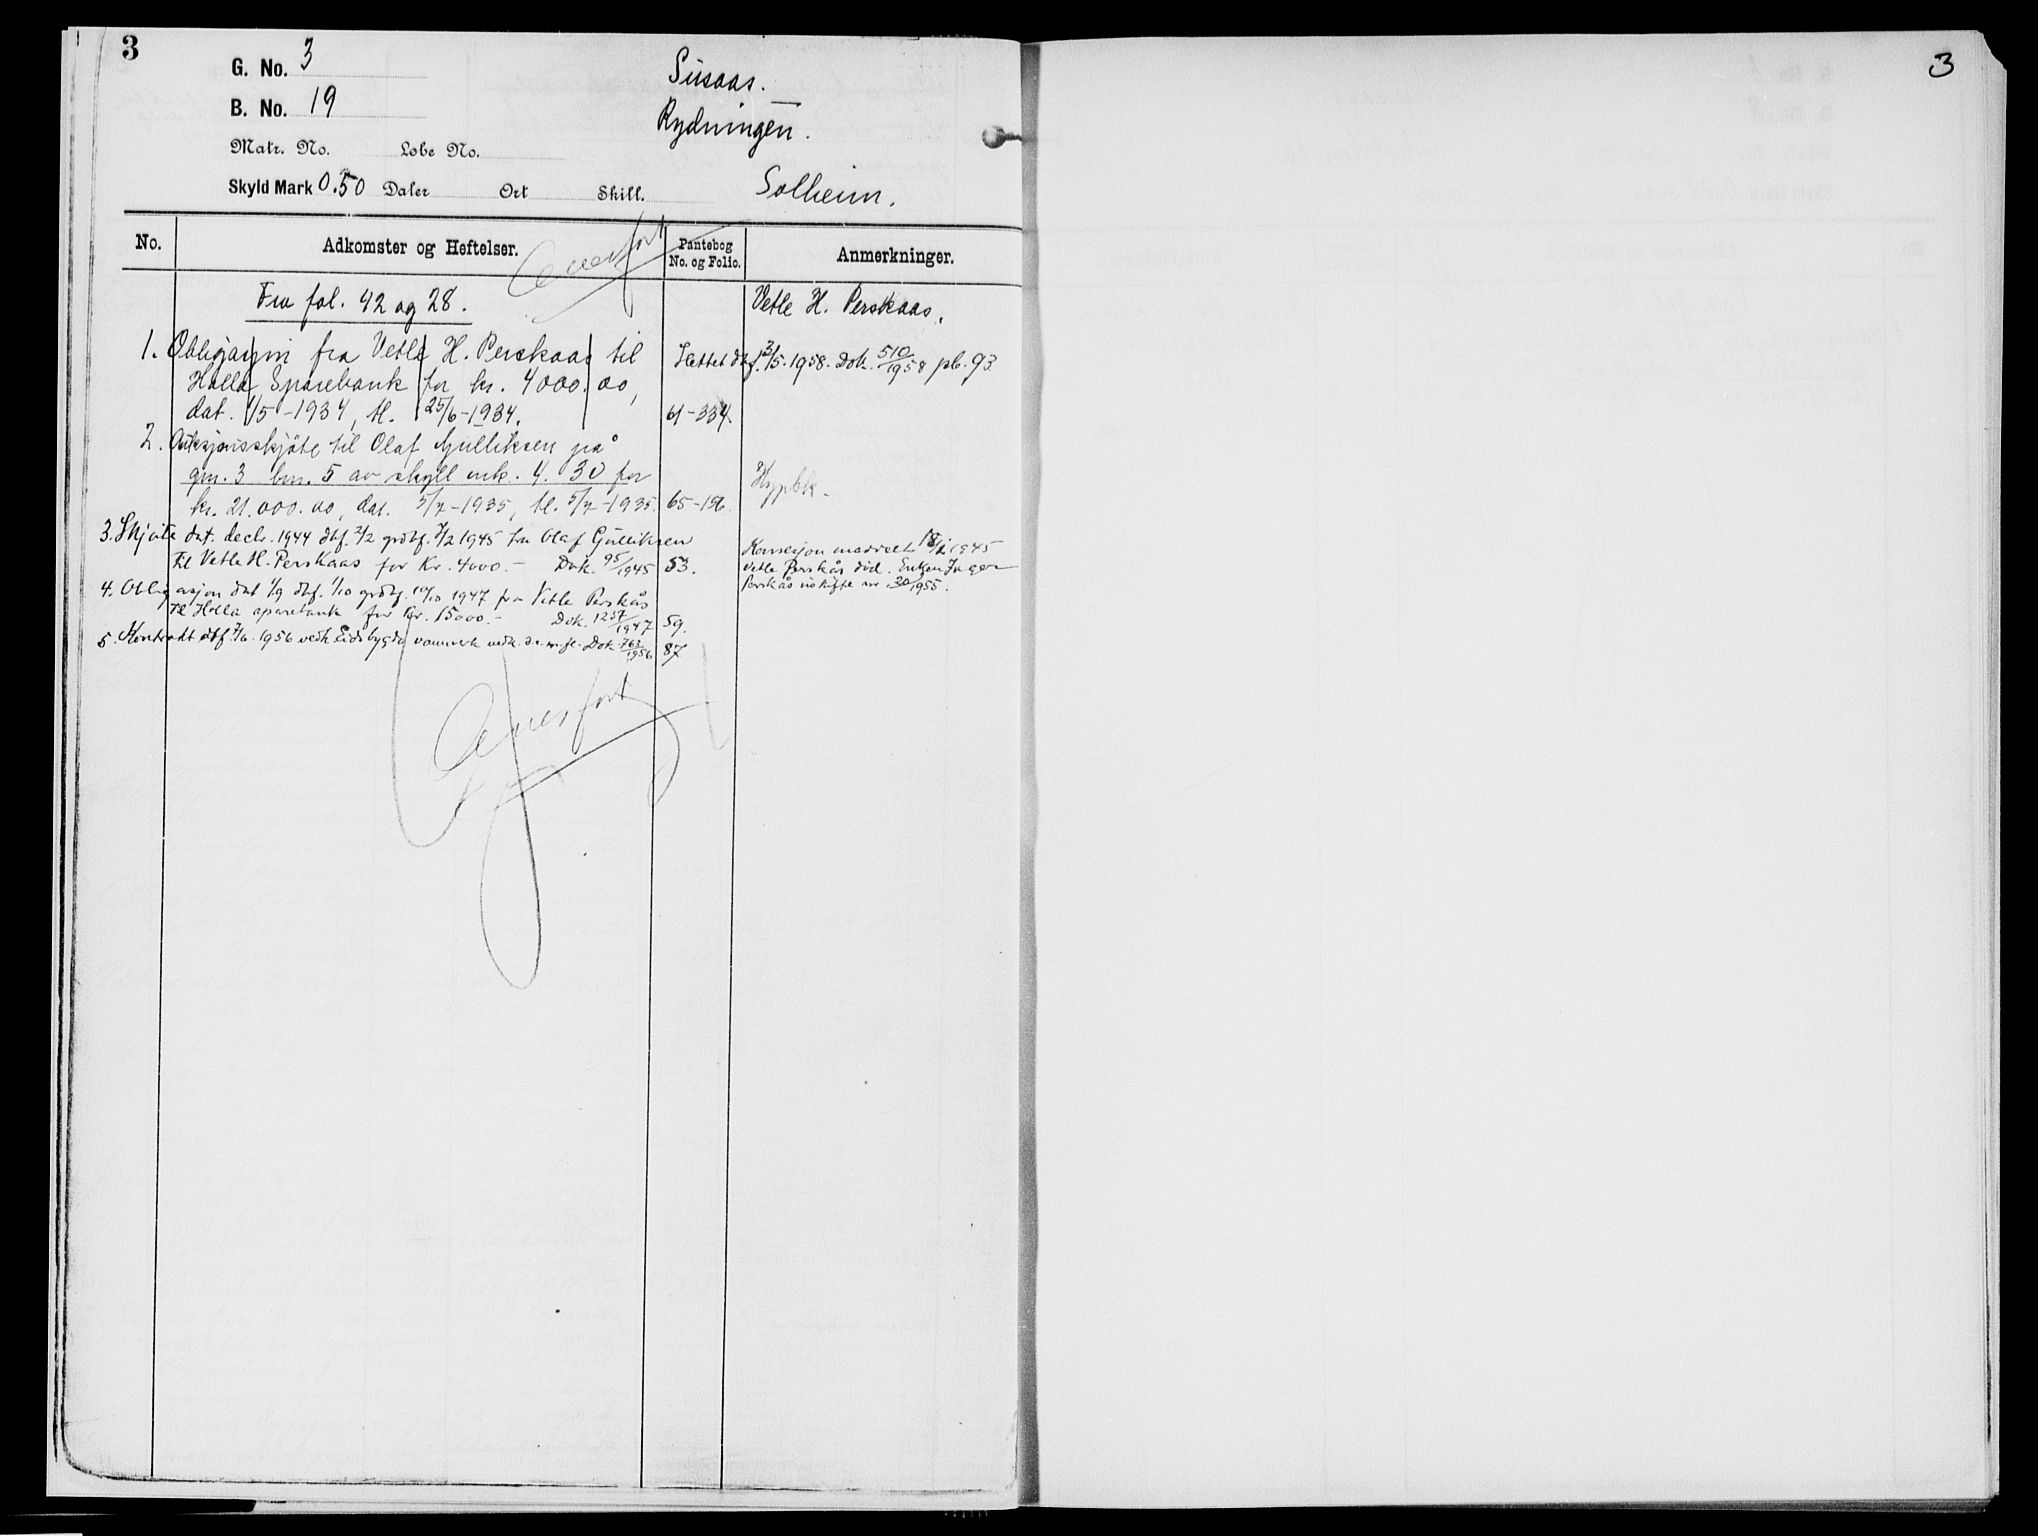 3
G. No. 3
B. No. 19
Matr. No. Løbe No.
Skyld Mark 0.50 Daler Ort Skill.
Susaas.
Rydningen.
Solheim.
No. Adkomster og Heftelser. Pantebog No. og Folio. Anmerkninger.
Overført
Fra fol. 42 og 28. Vetle H. Perskaas.
1. Obligasjon fra Vetle H. Perskaas til
Holla Sparebank for kr. 4000.00,
dat. 1/5-1934, tl. 25/6-1934. 61-334.
Slettet dbf. 3/5.1958. Dok. 510/1958 pb. 93
2. Auksjonsskjøte til Olaf Gulliksen på
gnr. 3 bnr. 5 av skyll mk. 4.30 for
kr. 21.000.00, dat. 5/7-1935, tl. 5/7-1935. 65-156.
Hyppbk.
3. Skjøte dat. decbr. 1944 dbf. 2/2 grdbf. 7/2 1945 fra Olaf Gulliksen
til Vetle H. Perskaas for Kr. 4000.- Dok. 95/1945 53.
Konsesjon meddelt 18/1 1945
Vetle Perskås död. Enken Inger
Perskås uskifte nr 30/1955.
4. Obligasjon dat 1/9 dbf. 1/10 grdbf. 10/10 1947 fra Vetle Perskås
til Holla sparebank for Kr. 15000.- Dok. 1257/1947 59.
5. Kontrakt dbf. 7/6. 1956 vedk. Eidsbygda vannverk vedk. d.e. m.fl. Dok. 763/1956 87
Overført
3